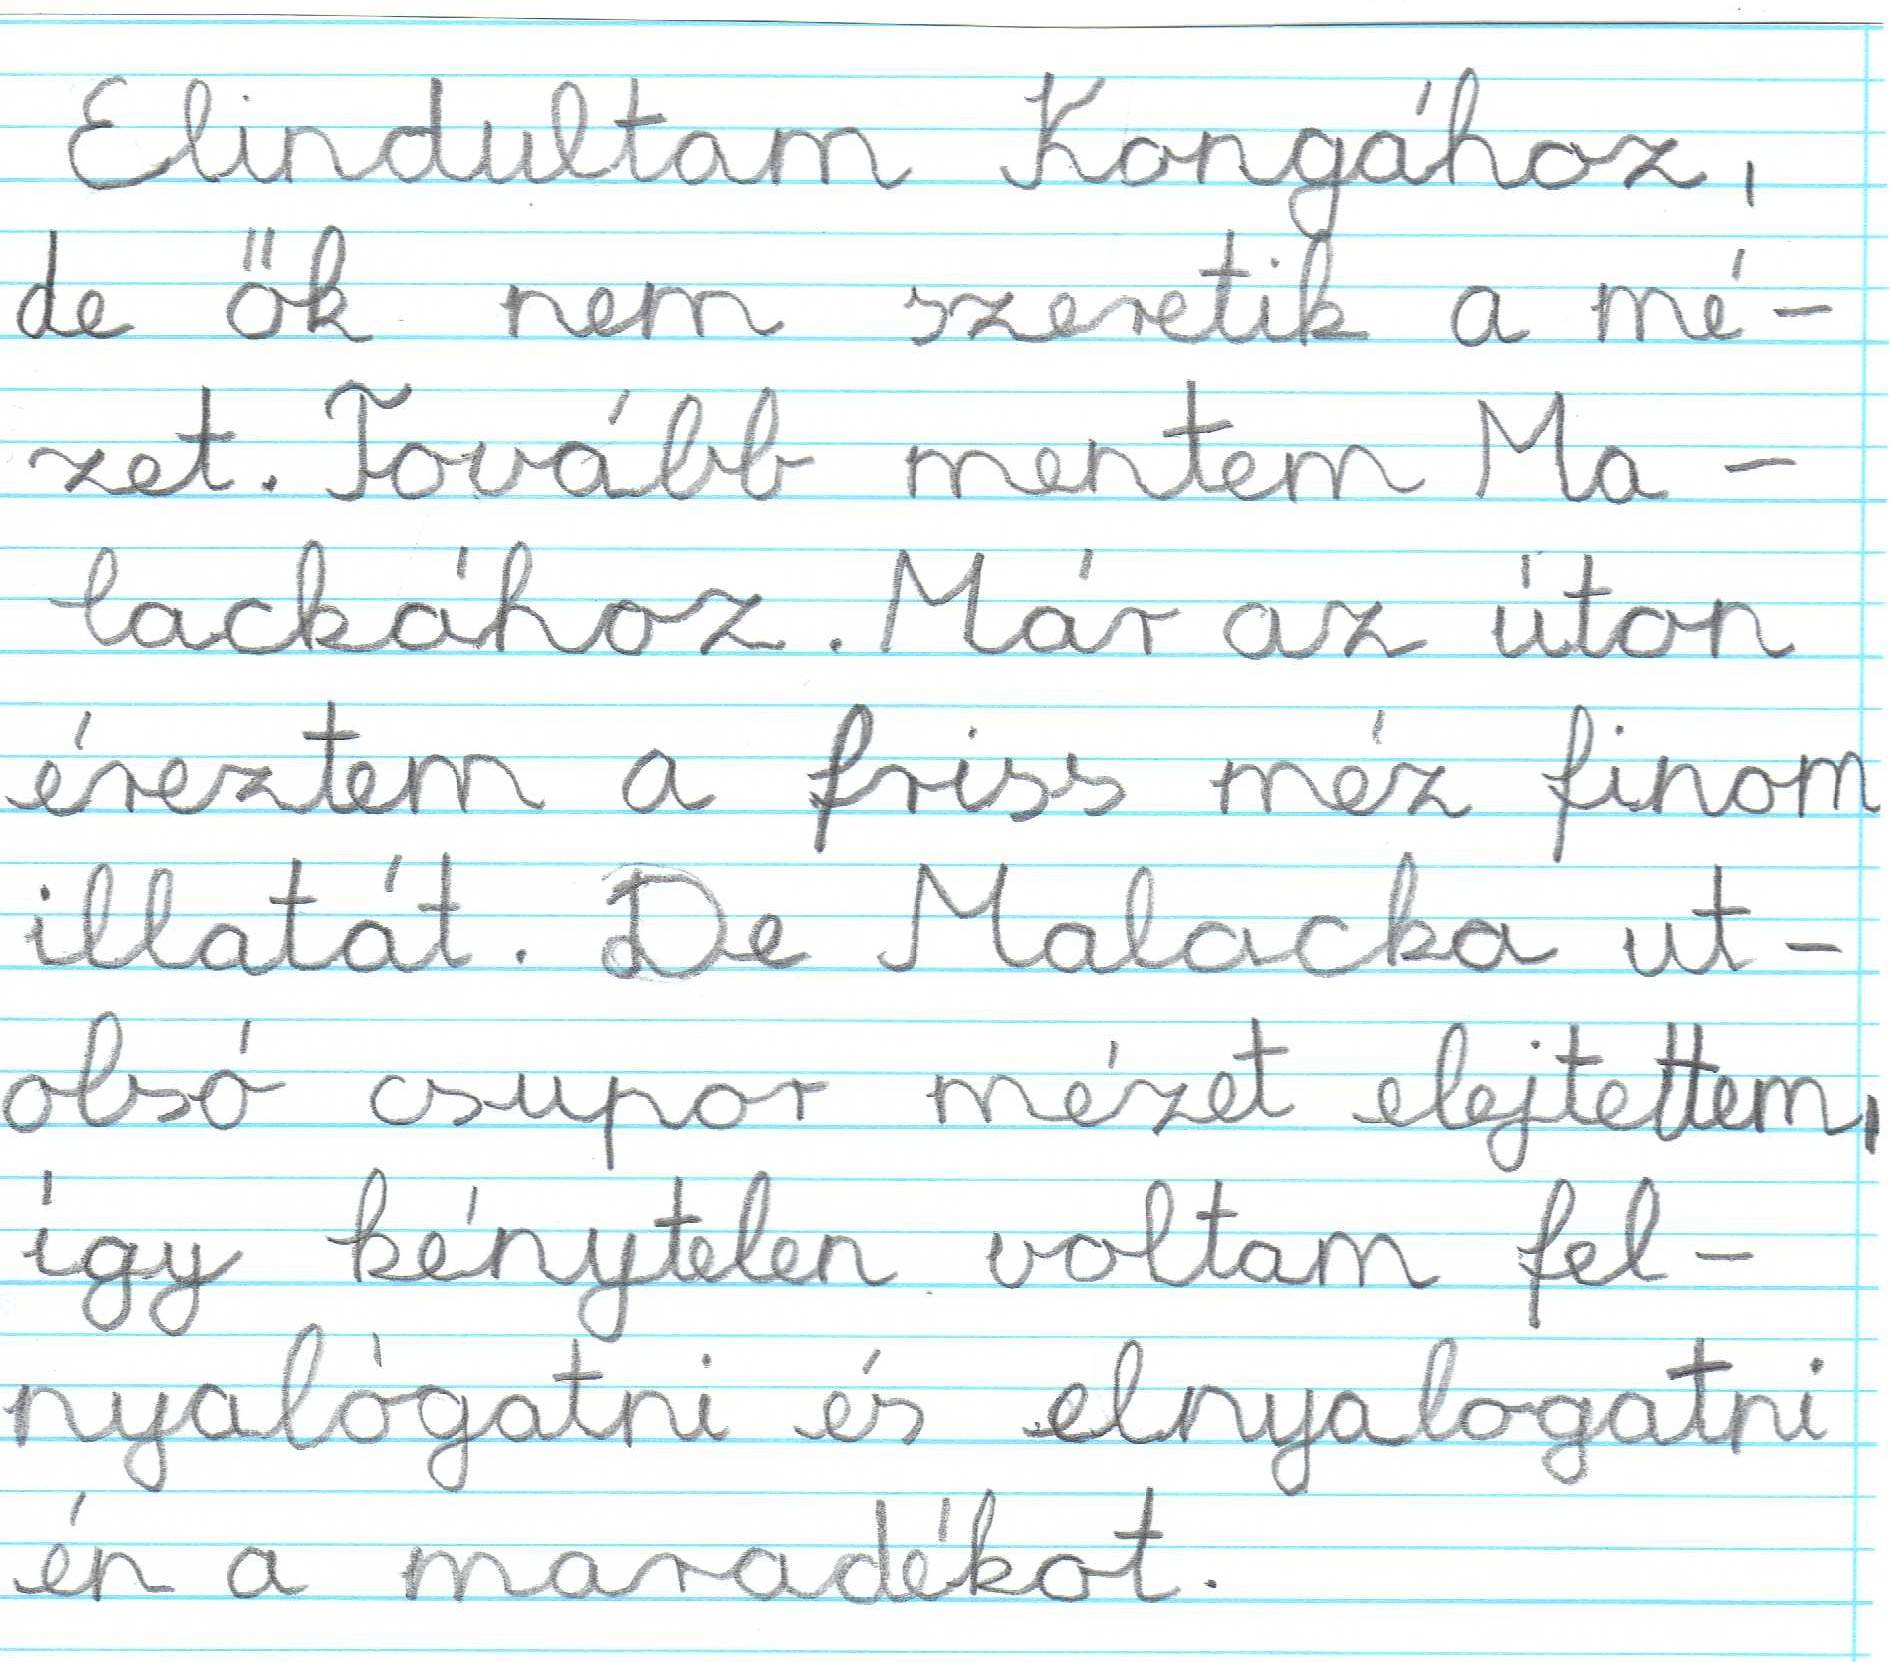 Elindultam Kongához,
de ők nem szeretik a mé-
zet. Tovább mentem Ma-
lackához. Már az úton
éreztem a friss méz finom
illatát. De Malacka ut-
olsó csupor mézet elejtettem,
így kénytelen voltam fel-
nyalógatni és elnyalogatni
én a maradékot.